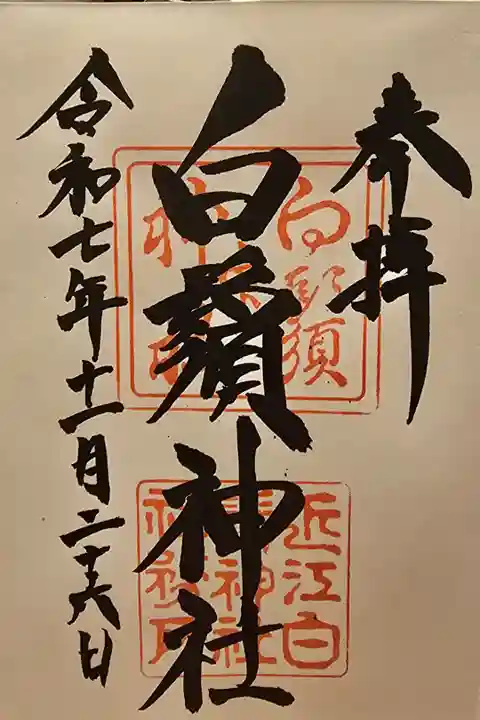 奉拝
白鬚神社
令和七年十一月二十六日
白鬚
近江白
鬚神社